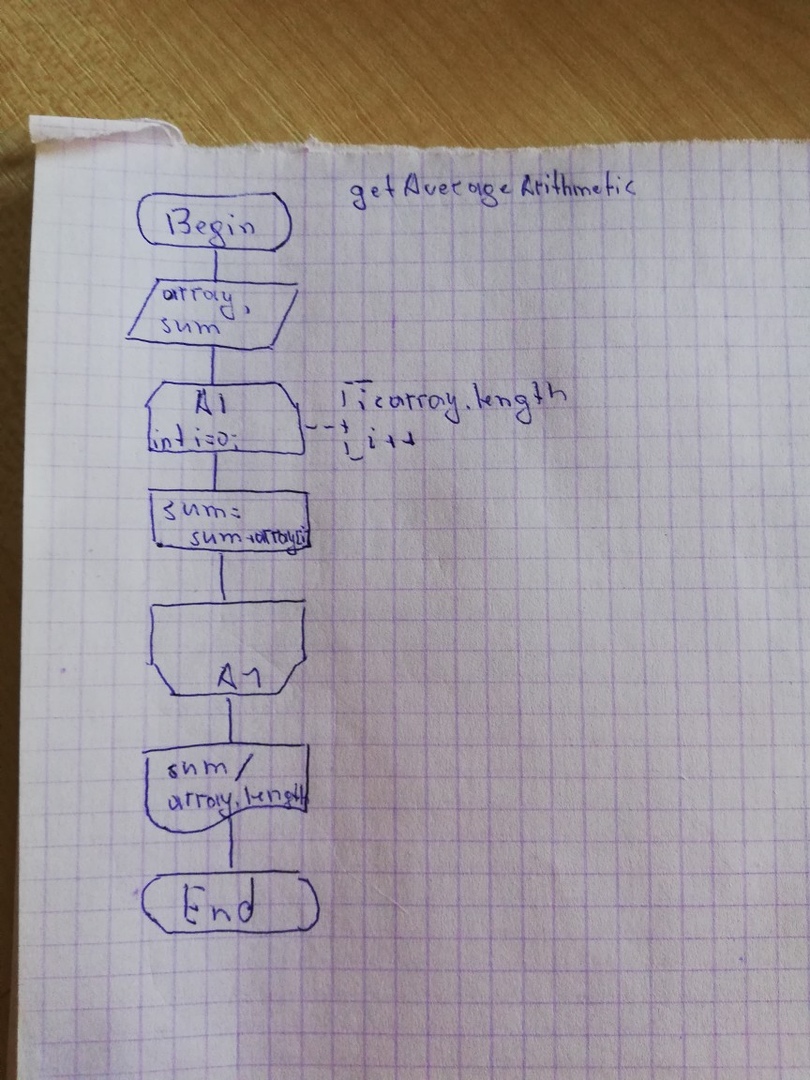 getAverageArithmetic
Begin
array,
sum
A1
int i=0;
i<array.length
i++
sum=
sum+array[i]
A1
sum/
array.length
End